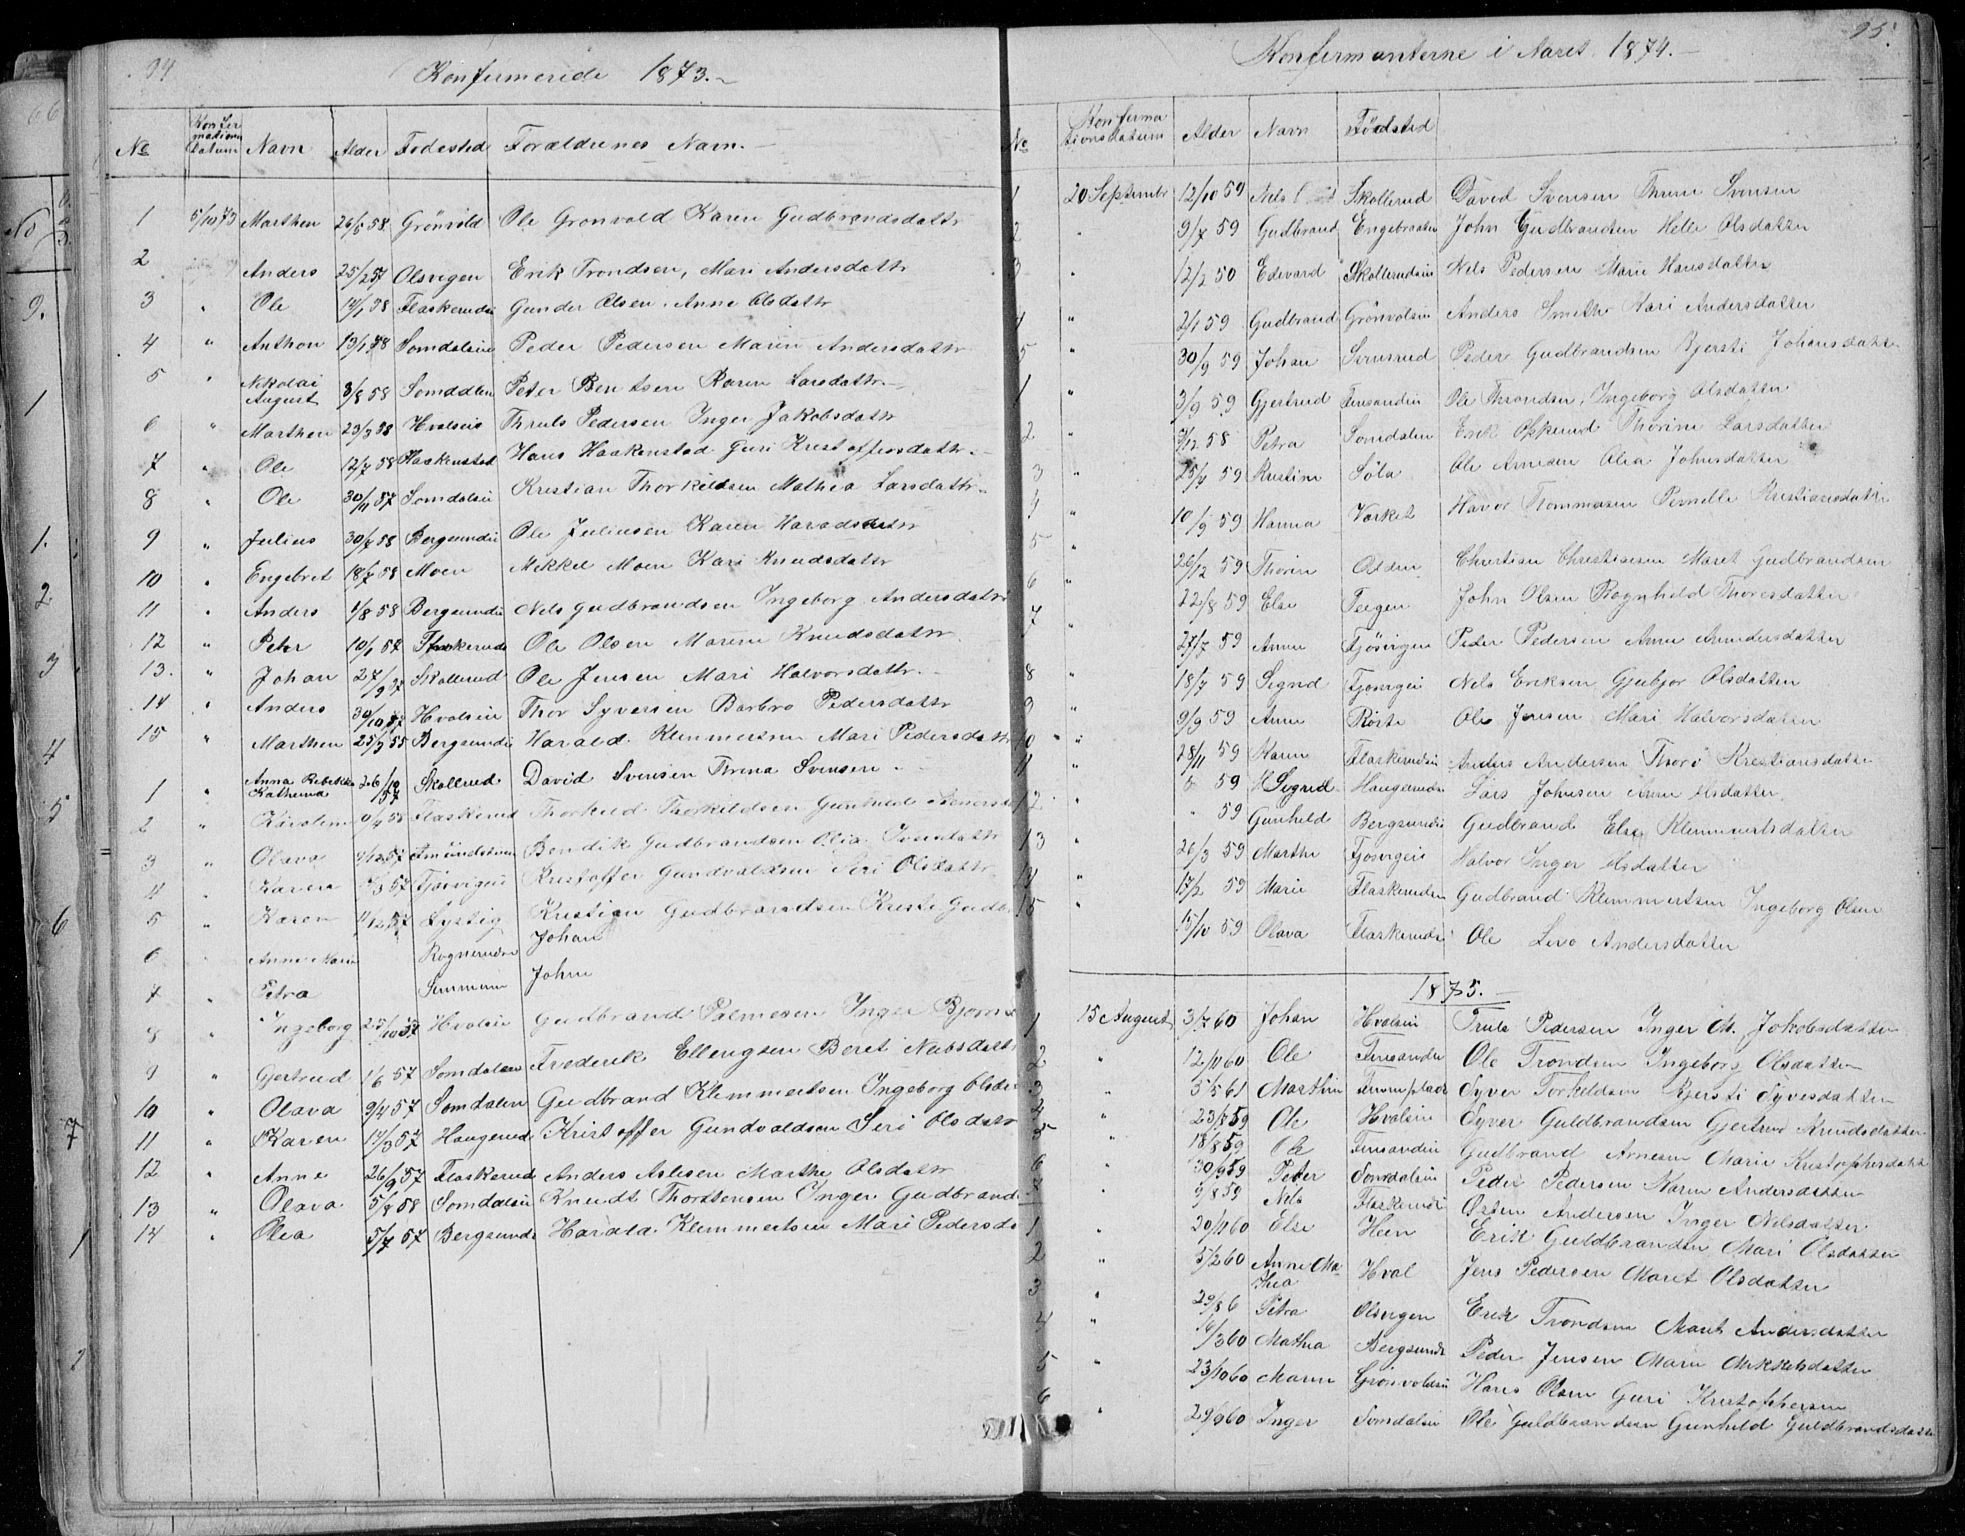 94
Konfirmerede 1873.
No Konfirmations datum Navn Alder Fødested Forældrenes Navn.
1 5/10 73 Marthen 26/5 58 Grönvold Ole Gronvold Karen Gudbrandsdattr
2 Anders 25/2 57 Olsvigen Erik Trondsen, Mari Andersdattr
3 " Ole 14/1 58 Flaskerudei Gunder Olsen. Anne Olsdattr
4 " Anthon 13/1 58 Somdalseie Peder Pedersen Maren Andersdattr
5 " Nikolai August 3/8 58 Somdalen Peter Bentsen Karen Larsdattr
6 " Marthen 23/3 58 Hvalseie Thruls Pedersen Inger Jakobsdattr
7 " Ole 12/7 58 Haakenstad Hans Haakenstad Guri Kristoffersdattr
8 " Ole 30/11 57 Somdalseie Kristian Thorkildsen Mathea Larsdattr
9 " Julius 30/7 58 Bergsundei Ole Juliussen Karen
10 " Engebret 18/7 58 Moen Mikkel Moen Kari Knudsdattr
11 " Anders 1/8 58 Bergsundei Nels Gudbrandsen Ingeborg Andersdattr
12 " Peter 10/1 57 Flaskerud Ole Olsen Maren Knudsdattr
13. " Johan 27/9 57 Skollerud Ole Jensen Mari Halvorsdattr.
14 " Anders 30/10 57 Hvalseie Thor Syversen Barbro Pedersdattr
15 " Marthen 25/9 55 Bergsundei Harald Klemmetsen Mari Pedersdattr
1 " Anna Rebekka Kathrina 26/10 57 Skollerud David Svensen Thrina Svensen
2 " Karoline 58 Flaskerud Thorkild Thorkildsen Gunhild
3 " Olava 57 Bendik Gudbrandsen Olia
4 " Karen 57 Fjösvigeie Kristoffer Gundvaldsen Siri Olsdattr
5 " Karen 11/12 57 Lystig Kristian Gudbrandsen Kristi Gudb
6 " Anne Marie Rognerudei Johan
7 " Petra John
8 " Ingeborg 25/10 57 Hvalseie Gudbrand Palmesen Inger Bjorns
9 " Gjertrud 1/6 57 Somdalen Frederik Ellengsen Beret Neibsdattr
10 " Olava 9/4 57 Somdalen Gudbrand Klemmetsen Ingeborg Olsdr
11 " Karen 14/3 57 Haugerud Kristoffer Gundvaldsen Siri Olsdattr
12 " Anne 26/9 57 Flaskerud Anders Aslesen Marthe Olsdattr
13 " Olava 5/8 58 Somdalseie Knudt Thorstensen Inger Gudbrand
14 " Olea 5/7 57 Bergsund Harald. Klemmetsen Mari Pedersda
95.
Konfirmanterne i Aaret 1874.
No Konfirmationsdatum Alder Navn Födsted
1 20 Septembr 12/10 59 Nils Skollerud David Svensen Thrine Svensen
2 " 9/7 59 Gudbrand Engebraaten John Gudbrandsen Helle Olsdatter
3 " 12/2 50 Edevard Skollerudeie Nels Pedersen Marie Hansdatter
4 " 2/1 59 Gudbrand Grönvoldseie Anders Smeth Kari Andersdatter
5 " 30/9 59 Johan Svensrud Peder Gudbrandsen Kjersti Johansdatter
1 " 3/9 59 Gjertrud Finsandeie Ole Throndsen, Ingeborg Olsdatter
2 " 7/12 58 Petra Somdalen Erik Opkerud Thorine Larsdatter
3 " 25/4 59 Kristine Söla Ole Arnesen Olea Johnsdatter
4 " 10/9 59 Hanna Værket Havor Tommasen Pernelle Kristiansdatter
5 " 26/12 59 Thorine Olden Christian Christiansen Maret Gudbrandsen
6 " 22/8 59 Else Teigen John Olsen Ragnhild Thoresdatter
7 " 27/7 59 Anne Fjösvigen Peder Pedersen Anne Amundersdatter
8 " 18/7 59 Sigrid Fjosvigeie Nels Eriksen Gjubjor Olsdatter
9 " 9/9 59 Anne Röste Ole Jensen Mari Halvorsdatter
10 " 28/11 59 Karen Flaskerudeie Anders Andersen Thora Kristiansdatter
11 " 59 Sigrid Haugerudei Lars Johnsen Anne Olsdatter
12 " 59 Gunhild Bergsundei Gudbrand Else Klemmetsdatter
13 " 26/3 59 Marthe Fjosvigeie Halvor Inger Olsdatter
14 " 17/2 59 Marie Flaskerudeie Gudbrand Klemmetsen Ingeborg Olsen
15 " 15/10 59 Olava Flaskerudei Ole Livo Andersdatter
1875.
1 15 August 3/7 60 Johan Hvalseie Truls Pedersen Inger M. Jokobsdatter
2 " 12/11 60 Ole Finsandei Ole Trondsen Ingeborg Olsdatter
3 " 5/5 61 Marthin Syver Torkildsen Kjersti Syversdatter
4 " 23/7 59 Ole Hvalseie Syver Guldbrandsen Gjertrud Knudsdatter
5 " 18/8 59 Ole Finsandeie Gudbrand Arnesen Marie Kristophersdatter
6 " 30/9 59 Peter Somdalseie Peder Pedersen Karen Andersdatter
7 9/8 59 Nils Flaskerudei Østen Andersen Inger Nilsdatter
1 20/11 60 Else Heen Erik Guldbrandsen Mari Olsdatter
2 " 5/2 60 Anne Mathea Hval Jens Pedersen Maret Olsdatter
3 " 29/8 6 Petra Olsvigen Erik Trondsen Marit Andersdatter
4 " 16/3 60 Mathea Bergsund Peder Jensen Marie Mikkelsdatter
5 " 23/10 60 Maren Grönvoldseie Hans Olsen Guri Kristophersen
6 " 29/9 60 Inger Somdalseie Ole Guldbrandsen Gunhild Guldbrandsdatter